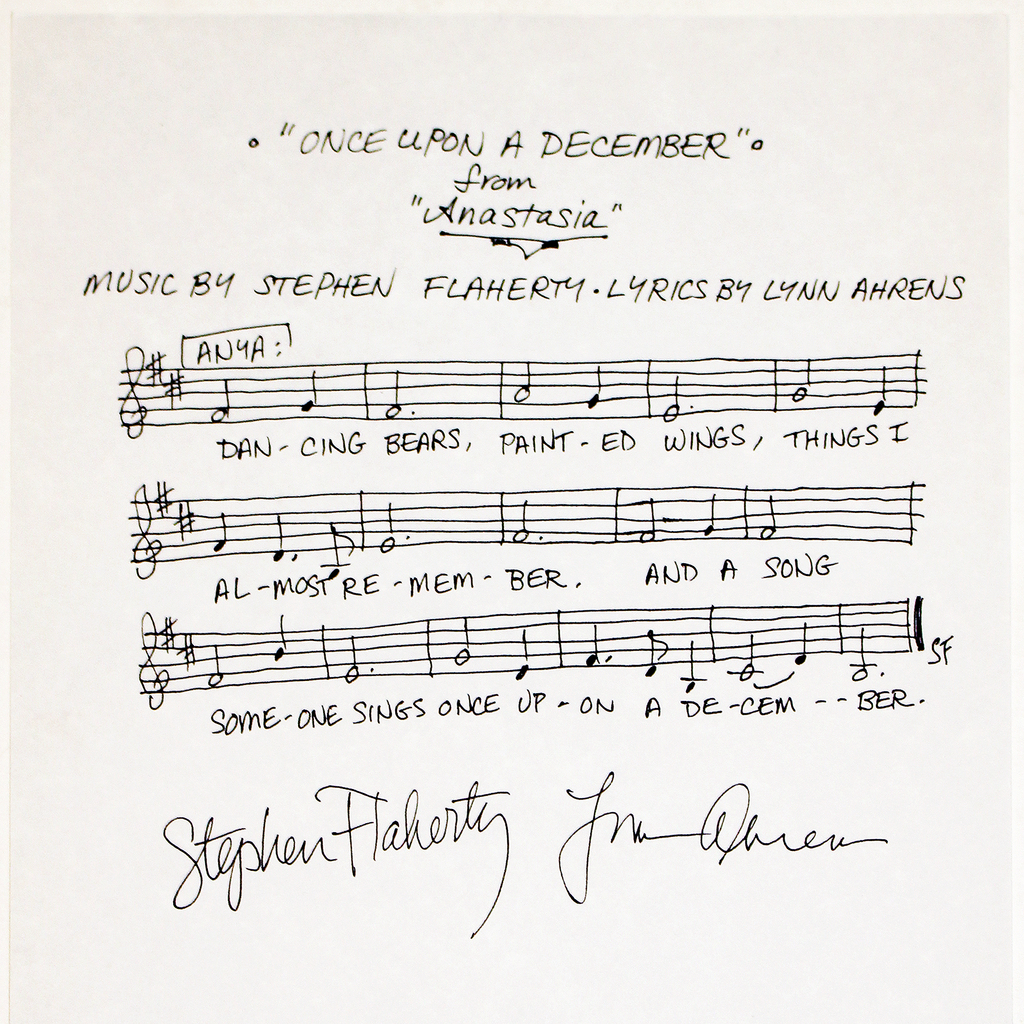 • "ONCE UPON A DECEMBER" •
from
"Anastasia"
MUSIC BY STEPHEN FLAHERTY • LYRICS BY LYNN AHRENS
ANYA:
DAN - CING BEARS, PAINT - ED WINGS, THINGS I
AL - MOST RE - MEM - BER. AND A SONG
SF
SOME - ONE SINGS ONCE UP - ON A DE - CEM - - BER.
Stephen Flaherty Lynn Ahrens